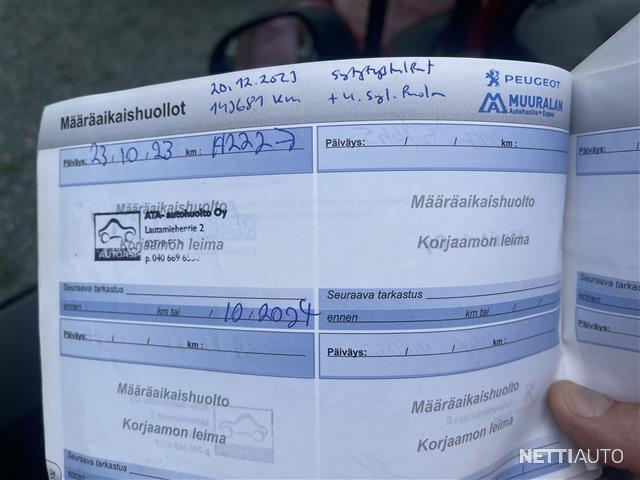 20.12.2023
143681 km
sytytystulpat
+ 4. syl. Puola
PEUGEOT
MUURALAN
Autohuolto • Espoo
Määräaikaishuollot
Päiväys: 23.10.23 km:
Päiväys: / / km:
Päiväys: /
ATA- autohuolto Oy
Lautamiehentie 2
p.040 669
AUTOASI
Määräaikaishuolto
Korjaamon leima
Määräaikaishuolto
Korjaamon leima
Seuraava tarkastus
ennen / km tai 10.2024
Seuraava tarkastus
ennen / km tai / /
Seuraava tarkastus
ennen
Päiväys: / / km:
Päiväys: / / km:
Päiväys:
Määräaikaishuolto
Korjaamon leima
Määräaikaishuolto
Korjaamon leima
Seuraava tarkastus
ennen
Seuraava tarkastus
ennen
NETTIAUTO